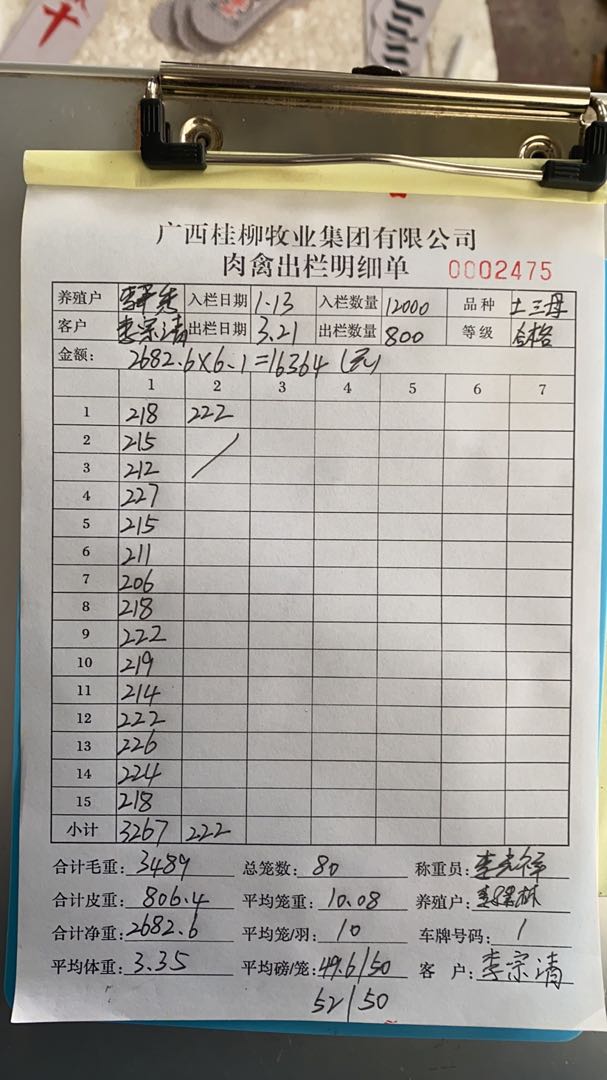 广西桂柳牧业集团有限公司
肉禽出栏明细单 0002475
养殖户 入栏日期 1.13 入栏数量 12000 品种 土三母
客户 李宗清 出栏日期 3.21 出栏数量 800 等级 合格
金额: 2682.6×6.1=16364(元)
1 2 3 4 5 6 7
1 218 222
2 215
3 212
4 227
5 215
6 211
7 206
8 218
9 222
10 219
11 214
12 222
13 226
14 224
15 218
小计 3267 222
合计毛重: 3489 总笼数: 80 称重员:
合计皮重: 806.4 平均笼重: 10.08 养殖户:
合计净重: 2682.6 平均笼/羽: 10 车牌号码: 1
平均体重: 3.35 平均磅/笼: 49.6/50 客户: 李宗清
52/50